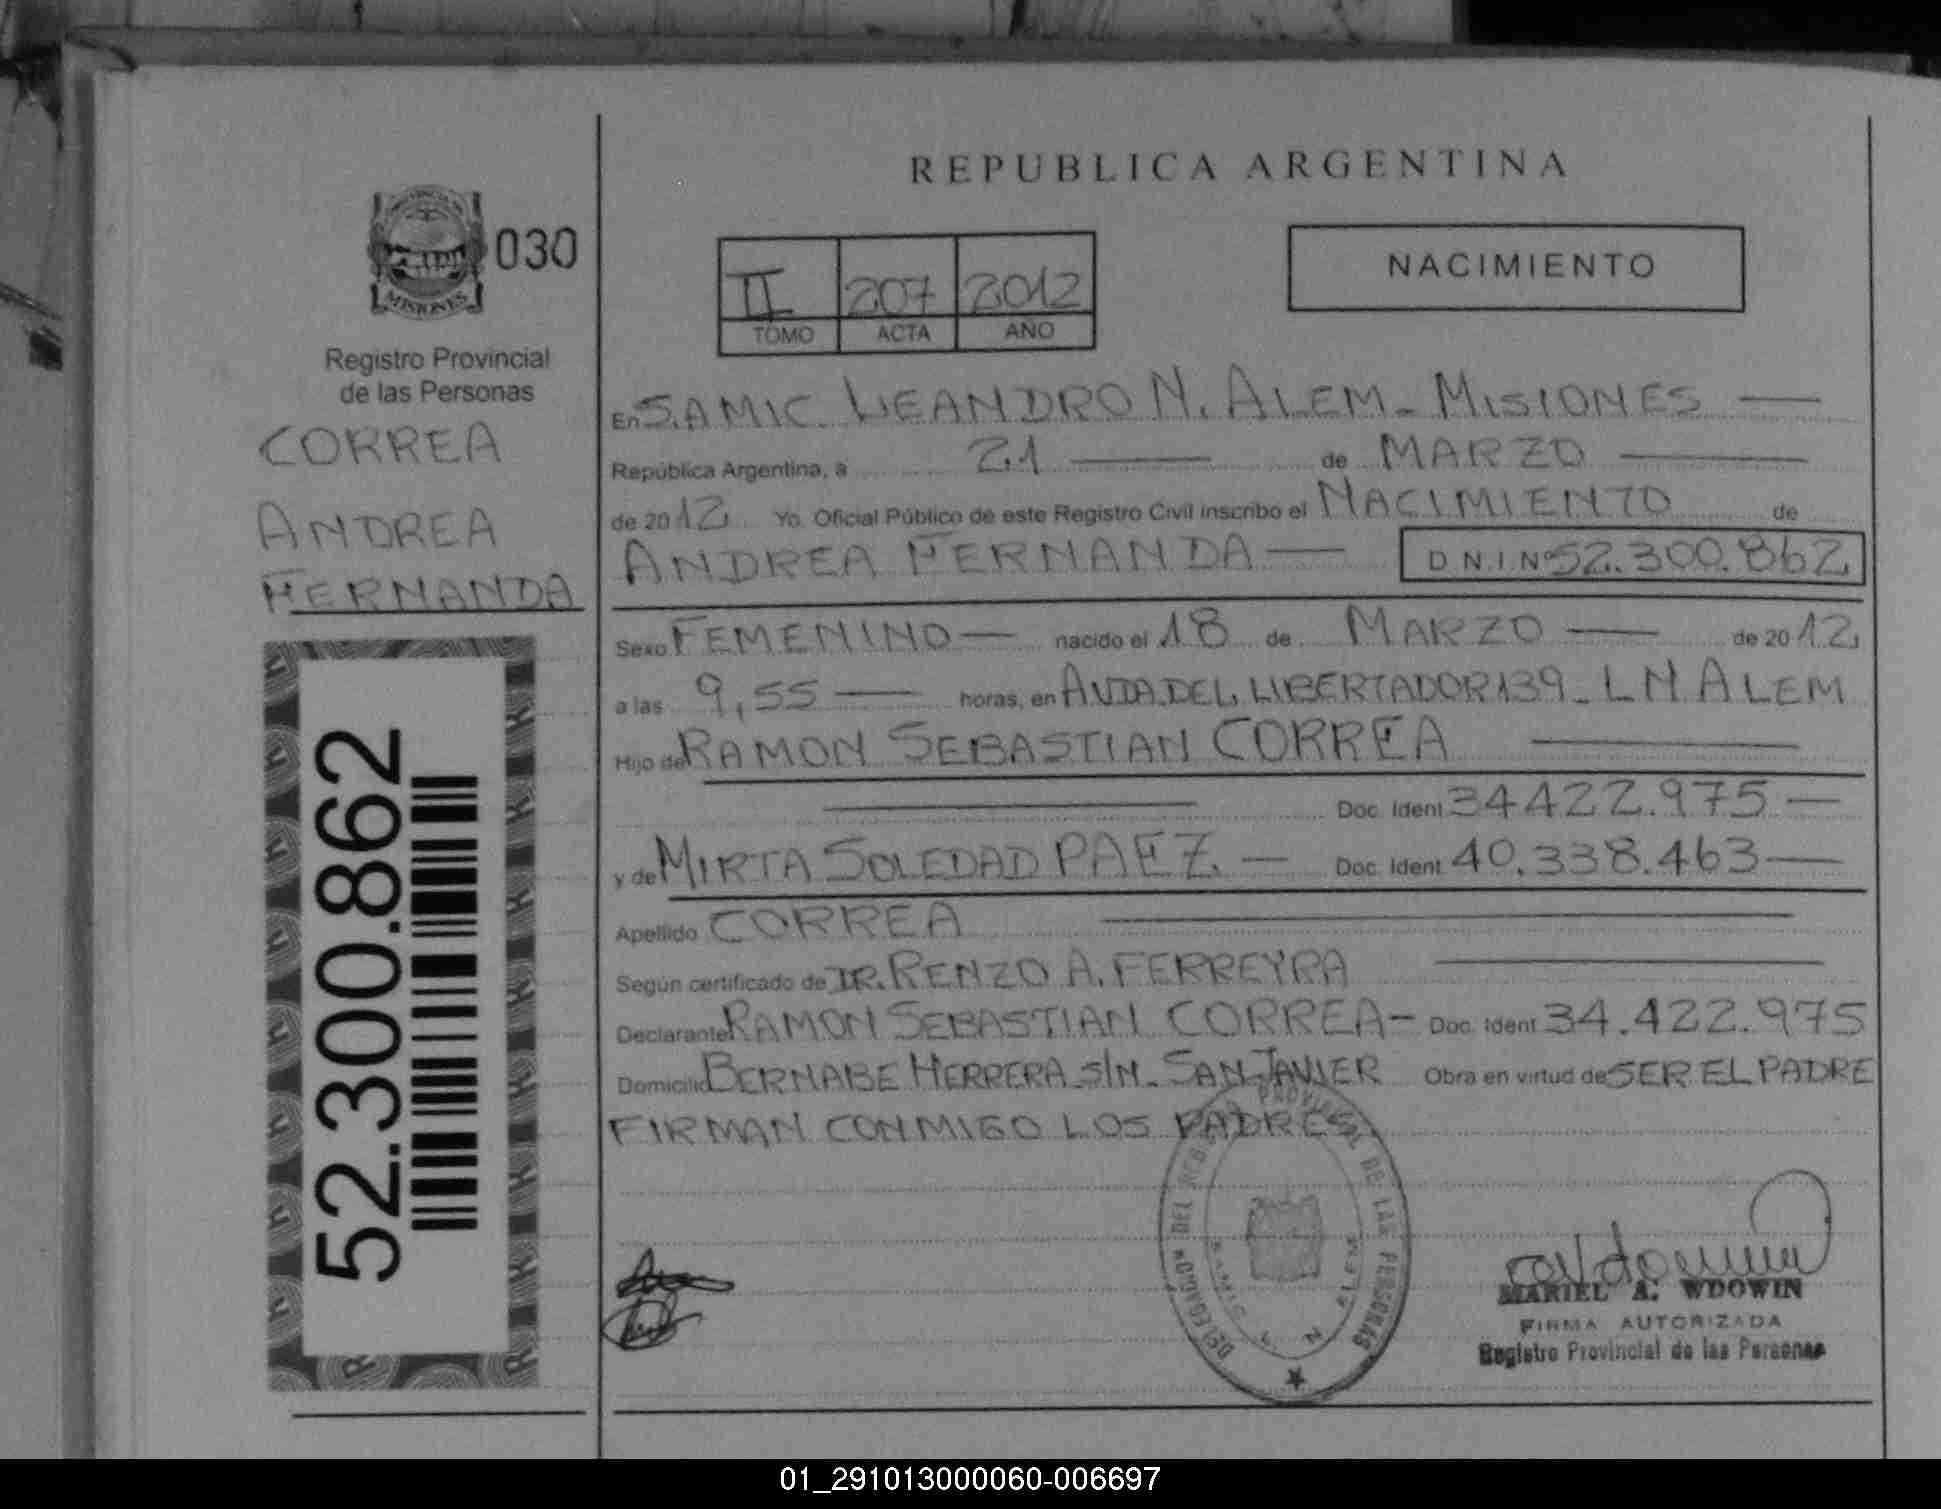 REPUBLICA ARGENTINA
MISIONES
030
Registro Provincial
de las Personas
CORREA
ANDREA
FERNANDA
52.300.862
II 207 2012
TOMO ACTA AÑO
NACIMIENTO
En S.AMIC. LEANDRO N. ALEM - MISIONES
República Argentina, a 21 de MARZO
de 2012 Yo. Oficial Público de este Registro Civil inscribo el NACIMIENTO de
ANDREA FERNANDA D N.I.Nº 52.300.862
Sexo FEMENINO nacido el 18 de MARZO de 2012
a las 9,55 horas, en AVDA.DEL LIBERTADOR 139 - L N ALEM
Hijo de RAMON SEBASTIAN CORREA
Doc. Ident 34422.975
y de MIRTA SOLEDAD PAEZ Doc. Ident 40.338.463
Apellido CORREA
Según certificado de DR. RENZO A. FERREYRA
Declarante RAMON SEBASTIAN CORREA - Doc. Ident 34.422.975
Domicilio BERNABE HERRERA S/N - SAN JAVIER Obra en virtud de SER EL PADRE
FIRMAN CONMIGO LOS PADRES
DELEGACION DEL REG. PROVINCIAL DE LAS PERSONAS
SAMIC L. N. ALEM
MARIEL A. WDOWIN
FIRMA AUTORIZADA
Registro Provincial de las Personas
01_291013000060-006697